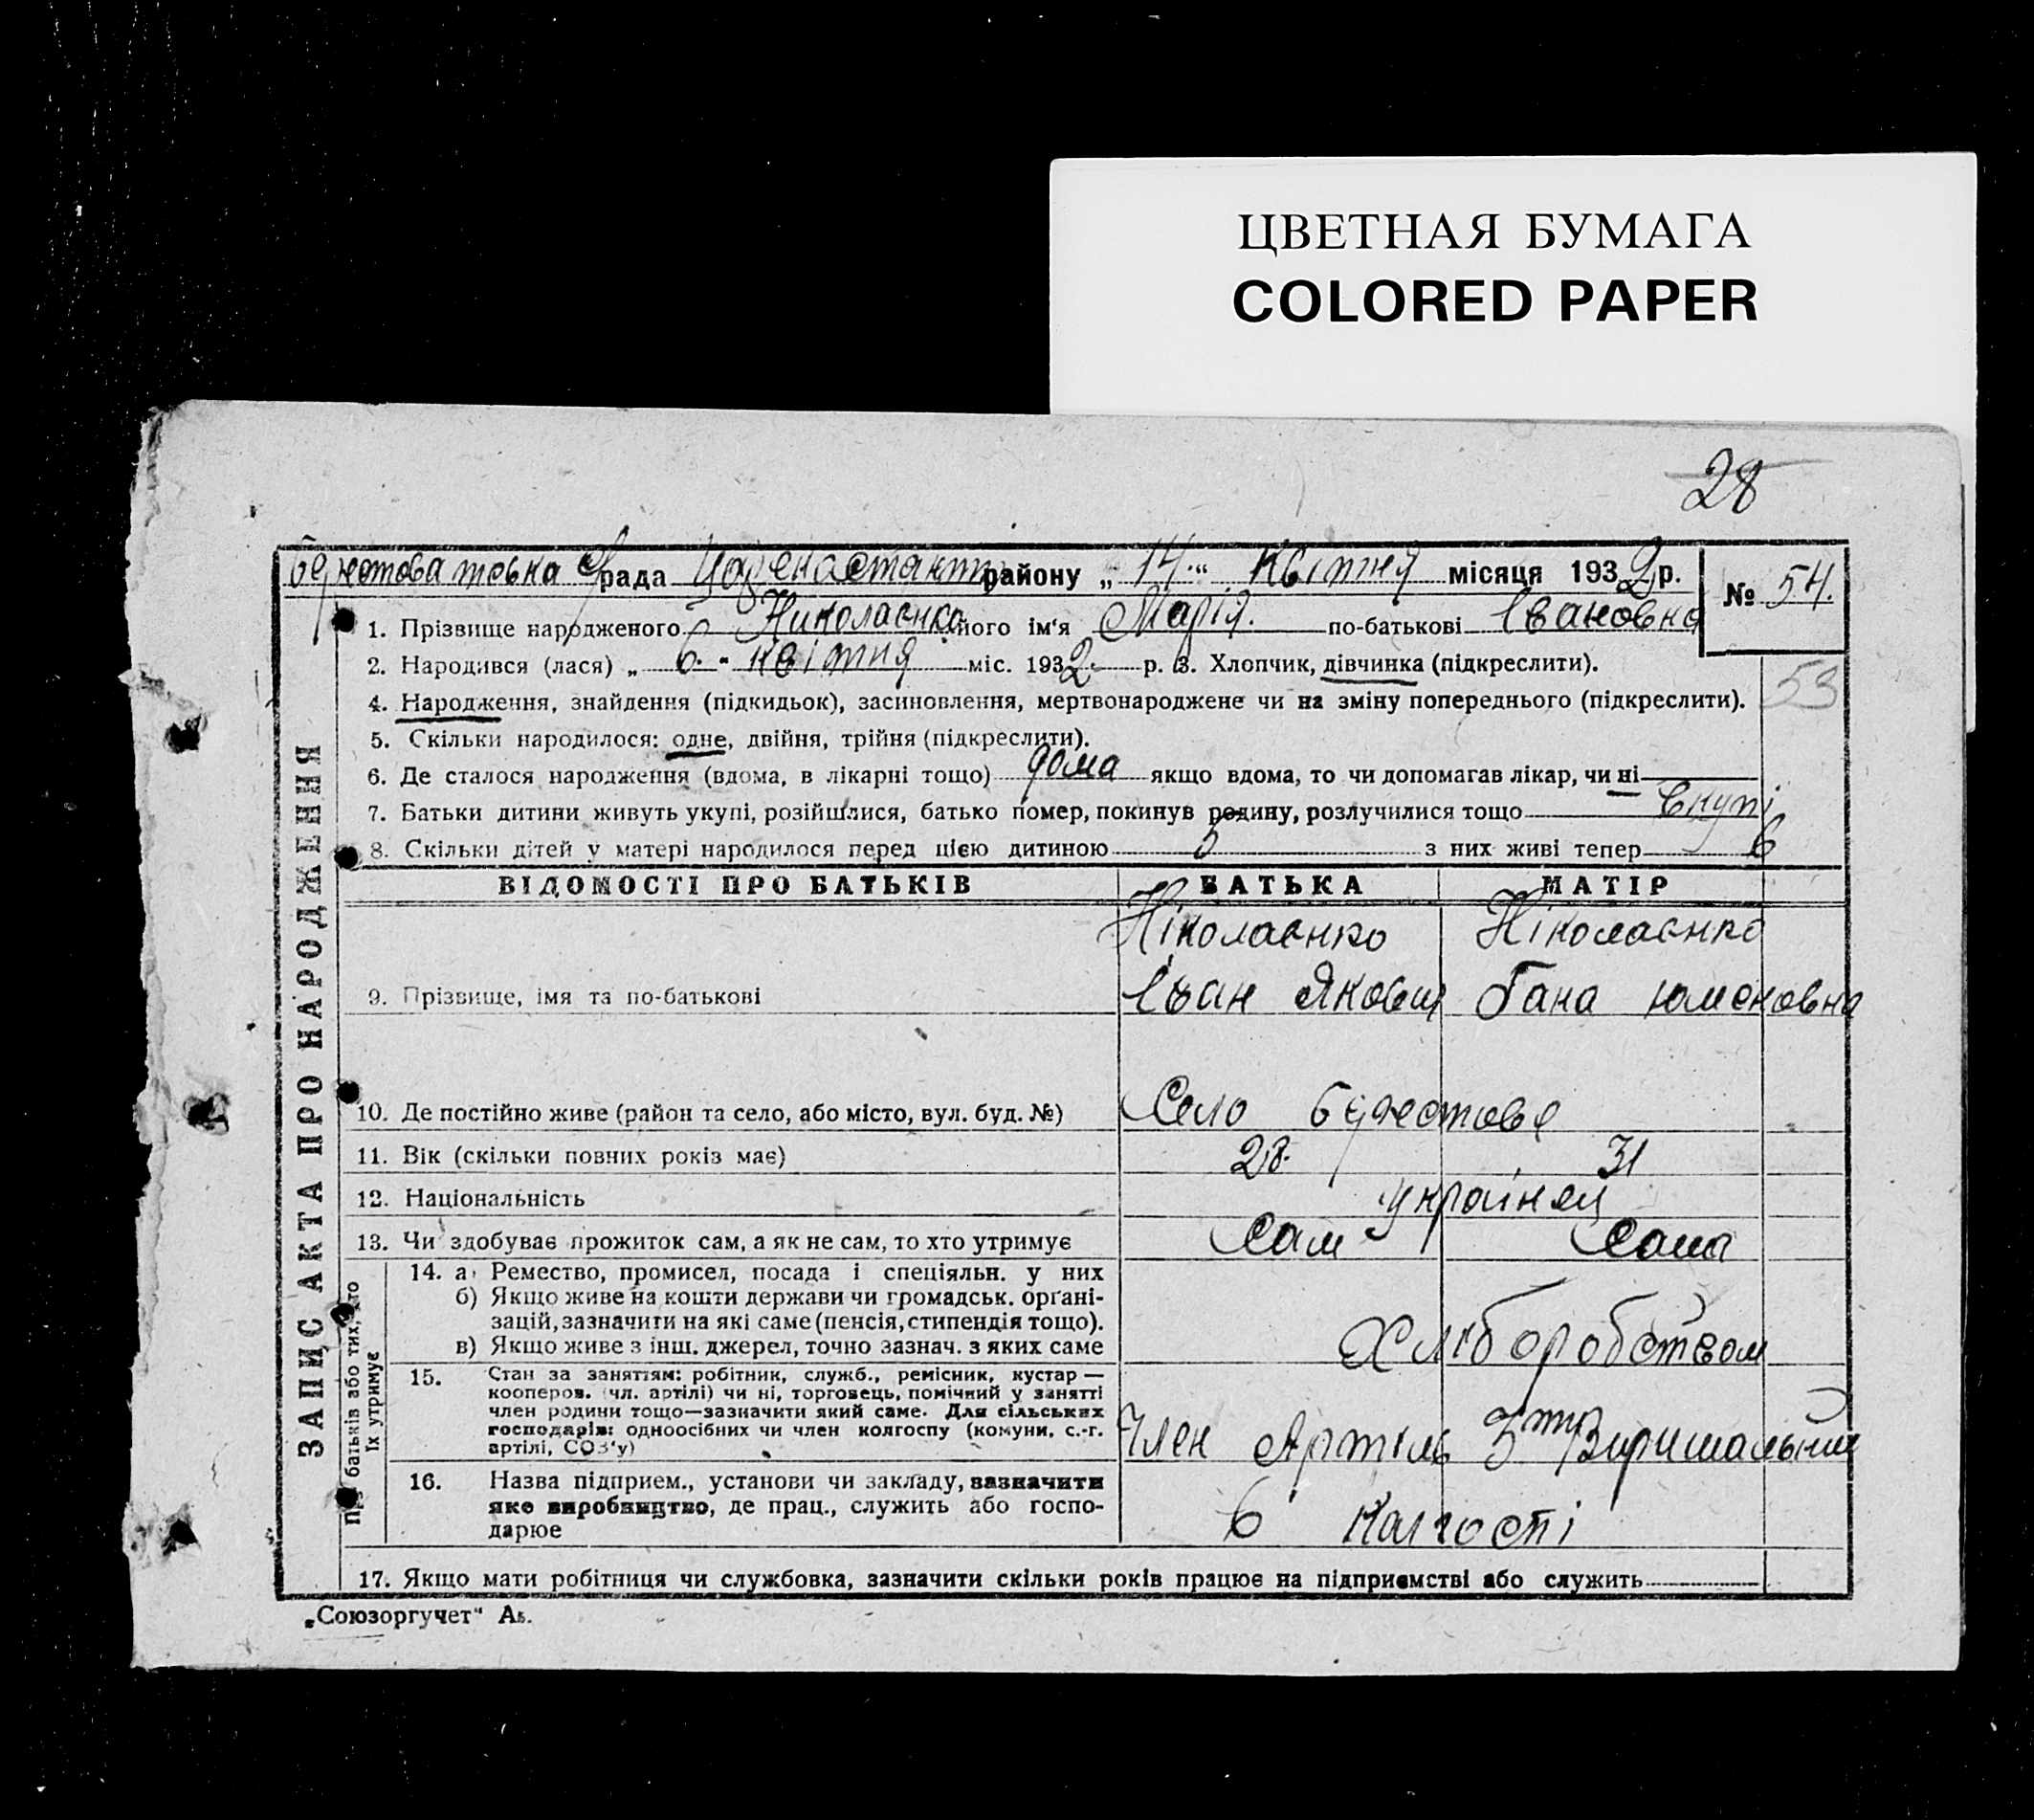 ЦВЕТНАЯ БУМАГА
COLORED PAPER
28
рада району „ 14 “ Квітня місяця 1932 р. № 54.
1. Прізвище народженого Николаєнко його ім‘я Марія. по-батькові Івановна
2. Народився (лася) „ 6. “ Квітня міс. 1932 р. 3. Хлопчик, дівчинка (підкреслити).
53
4. Народження, знайдення (підкидьок), засиновлення, мертвонароджене чи на зміну попереднього (підкреслити).
5. Скільки народилося: одне, двійня, трійня (підкреслити).
6. Де сталося народження (вдома, в лікарні тощо) дома якщо вдома, то чи допомагав лікар, чи ні
7. Батьки дитини живуть укупі, розійшлися, батько помер, покинув родину, розлучилися тощо Вкупі
8. Скільки дітей у матері народилося перед цією дитиною 5 з них живі тепер 6
ЗАПИС АКТА ПРО НАРОДЖЕННЯ
ВІДОМОСТІ ПРО БАТЬКІВ БАТЬКА МАТІР
Ніколаєнко Ніколаєнко
9. Прізвище, імя та по-батькові Іван Якович Гана
10. Де постійно живе (район та село, або місто, вул. буд. №) Село Берестове
11. Вік (скільки повних років має) 28. 31
12. Національність українец
13. Чи здобуває прожиток сам, а як не сам, то хто утримує Сам Сама
Про батьків або тих, хто їх утримує
14. а) Ремество, промисел, посада і спеціяльн. у них
б) Якщо живе на кошти держави чи громадськ. органі-
зацій, зазначити на які саме (пенсія, стипендія тощо).
в) Якщо живе з інш. джерел, точно зазнач. з яких саме Хліборобством
15. Стан за заняттям: робітник, служб., ремісник, кустар —
кооперов. (чл. артілі) чи ні, торговець, помічний у занятті
член родини тощо—зазначити який саме. Для сільських
господарів: одноосібних чи член колгоспу (комуни, с.-г.
артілі, СОЗ‘у) Член Артіль 3тій Вирішальний
16. Назва підприєм., установи чи закладу, зазначити
яке виробництво, де прац., служить або госпо-
дарює в Калгоспі
17. Якщо мати робітниця чи службовка, зазначити скільки років працює на підприємстві або служить
„Союзоргучет“ Ав.